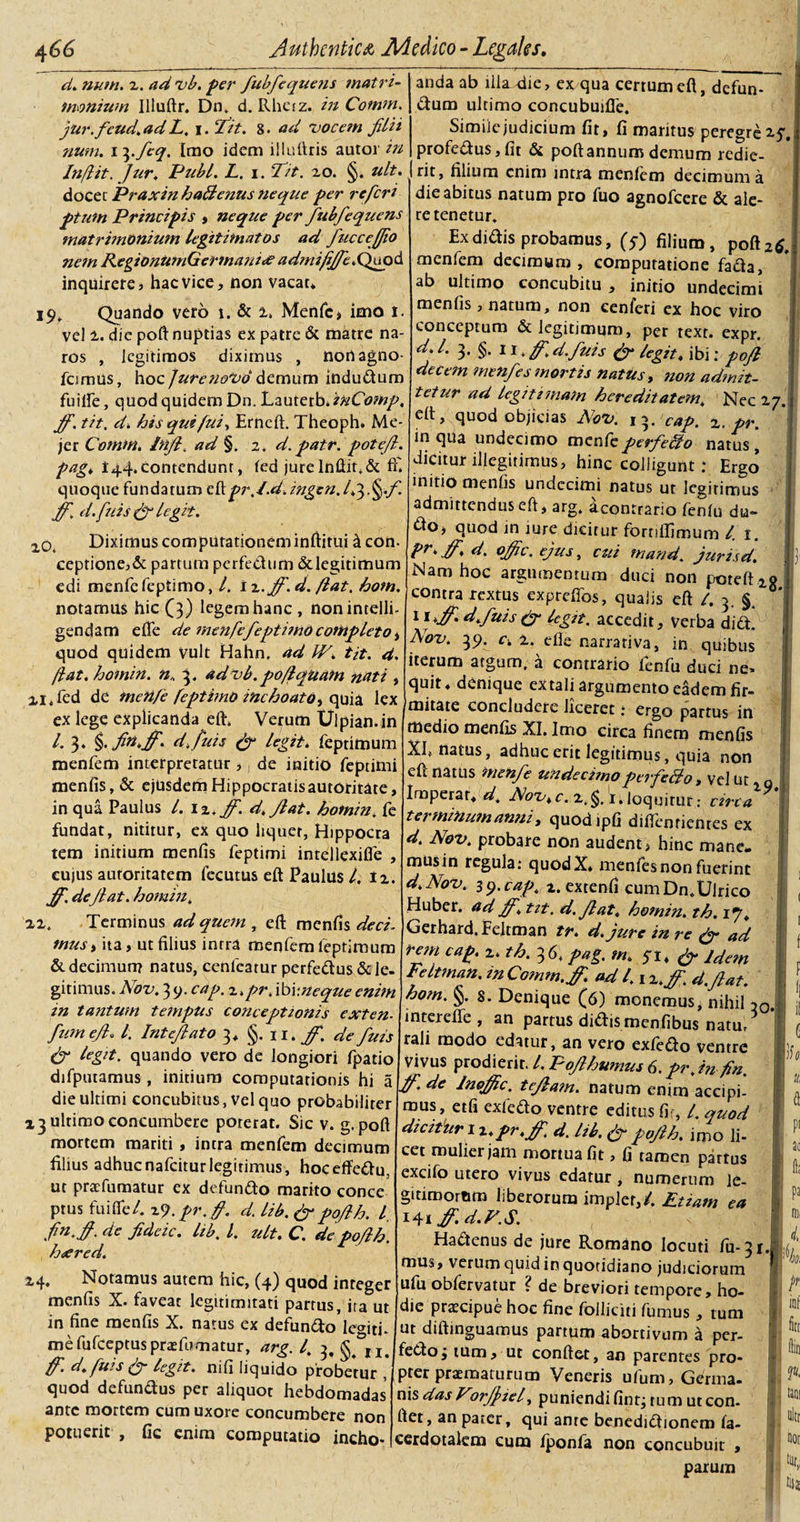 466 Authenticæ Medico-Legales.
d. num. 2. ad vb. per subsequens matri-
monium Illustr. Dn. d. Rhetz. in Comm.
jur. feud. ad L. 1. Tit. 8. ad vocem filii
num. 13. seq. Imo idem illustris autor in
Instit. Jur. Publ. L. 1. Tit. 20. §. ult.
docet Praxin hactenus neque per rescri
ptum Principis, neque per subsequens
matrimonium legitimatos ad successio
nem Regionum Germaniæ admisisse. Quod
inquirere, hac vice, non vacat.
19. Quando vero 1. & 2. Mense, imo 1.
vel 2. die post nuptias ex patre & matre na-
tos, legitimos diximus, non agno-
scimus, hoc Jure novo demum inductum
fuisse, quod quidem Dn. Lauterb. in Comp.
ff. tit. d. his qui sui, Ernest. Theoph. Me-
jer Comm. Inst. ad §. 2. d. patr. potest.
pag. 144. contendunt, sed jure Instit. & ff.
quoque fundatum est pr. I. d. ingen. l. 3. §. f.
ff. d. suis & legit.
20. Diximus computationem institui à con-
ceptione, & partum perfectum & legitimum
edi mense septimo, l. 12. ff. d. stat. hom.
notamus hic (3) legem hanc, non intelli-
gendam esse de mense septimo completo,
quod quidem vult Hahn. ad W. tit. d.
stat. homin. n. 3. ad vb. postquam nati,
21. sed de mense septimo inchoato, quia lex
ex lege explicanda est. Verum Ulpian. in
l. 3. §. fin. ff. d. suis & legit. septimum
mensem interpretatur, de initio septimi
mensis, & ejusdem Hippocratis autoritate,
in quâ Paulus l. 12. ff. d. stat. homin. se
fundat, nititur, ex quo liquet, Hippocra
tem initium mensis septimi intellexisse,
cujus autoritatem secutus est Paulus l. 12.
ff. de stat. homin.
22. Terminus ad quem, est mensis deci-
mus, ita, ut filius intra mensem septimum
& decimum natus, censeatur perfectus & le-
gitimus. Nov. 39. cap. 2. pr. ibi: neque enim
in tantum tempus conceptionis exten-
sum est. l. Intestato 3. §. 11. ff. de suis
& legit. quando vero de longiori spatio
disputamus, initium computationis hi à
die ultimi concubitus, vel quo probabiliter
23 ultimo concumbere poterat. Sic v. g. post
mortem mariti, intra mensem decimum
filius adhuc nascitur legitimus, hoc effectu,
ut præsumatur ex defuncto marito conce
ptus fuisse l. 29. pr. ff. d. lib. & posth. l.
fin. ff. de fideic. lib. l. ult. C. de posth.
hæred.
24. Notamus autem hic, (4) quod integer
mensis X. faveat legitimitati partus, ita ut
in fine mensis X. natus ex defuncto legiti-
me susceptus præsumatur, arg. l. 3. §. 11.
ff. d. suis & legit. nisi liquido probetur,
quod defunctus per aliquot hebdomadas
ante mortem cum uxore concumbere non
potuerit, sic enim computatio incho-
anda ab illa die, ex qua certum est, defun-
ctum ultimo concubuisse.
Simile judicium fit, si maritus peregrè 25.
profectus, sit & post annum demum redie-
rit, filium enim intra mensem decimum à
die abitus natum pro suo agnoscere & ale-
re tenetur.
Ex dictis probamus, (5) filium, post 26.
mensem decimum, computatione facta,
ab ultimo concubitu, initio undecimi
mensis, natum, non censeri ex hoc viro
conceptum & legitimum, per text. expr.
d. l. 3. §. 11. ff. d. suis & legit. ibi: post
decem menses mortis natus, non admit-
tetur ad legitimam hereditatem. Nec 27.
est, quod objicias Nov. 13. cap. 2. pr.
in qua undecimo mense perfecto natus,
dicitur illegitimus, hinc colligunt: Ergo
initio mensis undecimi natus ut legitimus
admittendus est, arg. à contrario sensu du-
cto, quod in jure dicitur fortissimum l. 1.
pr. ff. d. offic. ejus, cui mand. jurisd.
Nam hoc argumentum duci non potest 28.
contra textus expressos, qualis est l. 3. §.
11. ff. d. suis & legit. accedit, verba dict.
Nov. 39. c. 2. esse narrativa, in quibus
iterum argum. à contrario sensu duci ne-
quit. denique ex tali argumento eâdem fir-
mitate concludere liceret: ergo partus in
medio mensis XI. Imo circa finem mensis
XI. natus, adhuc erit legitimus, quia non
est natus mense undecimo perfecto, vel ut 29.
Imperat. d. Nov. c. 2. §. 1. loquitur: circa
terminum anni, quod ipsi dissentientes ex
d. Nov. probare non audent, hinc mane-
mus in regula: quod X. menses non fuerint
d. Nov. 39. cap. 2. extensi cum Dn. Ulrico
Huber. ad ff. tit. d. stat. homin. th. 17.
Gerhard. Feltman tr. d. jure in re & ad
rem cap. 2. th. 36. pag. m. 51. & Idem
Feltman. in Comm. ff. ad l. 12. ff. d. stat.
hom. §. 8. Denique (6) monemus, nihil 30.
interesse, an partus dictis mensibus natu-
rali modo edatur, an vero exsecto ventre
vivus prodierit. l. Posthumus 6. pr. in fin.
ff. de Inoffic. testam. natum enim accipi-
mus, etsi exsecto ventre editus sit, l. quod
dicitur 12. pr. ff. d. lib. & posth. imo li-
cet mulier jam mortua sit, si tamen partus
exciso utero vivus edatur, numerum le-
gitimorum liberorum implet, l. Etiam ea
141 ff. d. V. S.
Hactenus de jure Romano locuti su- 31.
mus, verum quid in quotidiano judiciorum
usu observatur? de breviori tempore, ho-
die præcipuè hoc fine solliciti sumus, tum
ut distinguamus partum abortivum à per-
fecto; tum, ut constet, an parentes pro-
pter præmaturum Veneris usum, Germa-
nis das Vorspiel, puniendi sint; tum ut con-
stet, an pater, qui ante benedictionem sa-
cerdotalem cum sponsa non concubuit,
parum